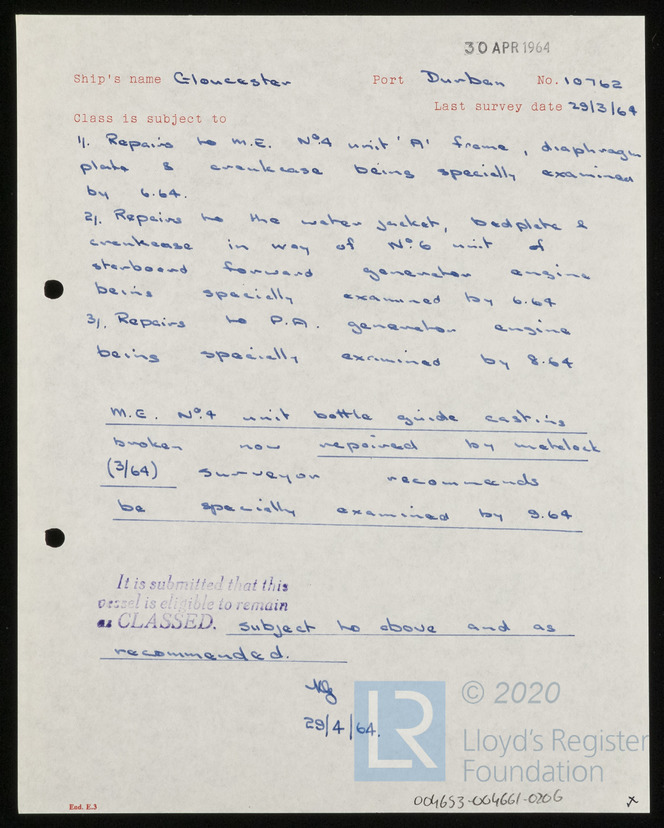 30 APR 1964
Ship's name Gloucester Port Durban No. 10762
Last survey date 29/3/64
Class is subject to
1/. Repairs to M.E. Nº4 unit 'A' frame, diaphragm
plate & crankcase being specially examined
by 6.64.
2/. Repairs to the water jacket, bedplate &
crankcase in way of Nº6 unit of
starboard forward generator engine
being specially examined by 6.64
3/. Repairs to P.A. generator engine
being specially examined by 8.64
M.E. Nº4 unit bottle guide casting
broken now repaired by metalock
(3/64) surveyor recommends
be specially examined by 9.64
It is submitted that this
vessel is eligible to remain
as CLASSED. subject to above and as
recommended.
29/4/64.
LR
© 2020
Lloyd's Register
Foundation
004653-004661-0206
End. E.3